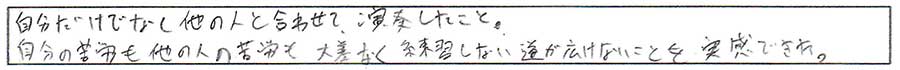 自分だけでなく他の人と合わせて、演奏したこと。
自分の苦労も他の人の苦労も大差なく練習しない道が広けないことを実感できた。